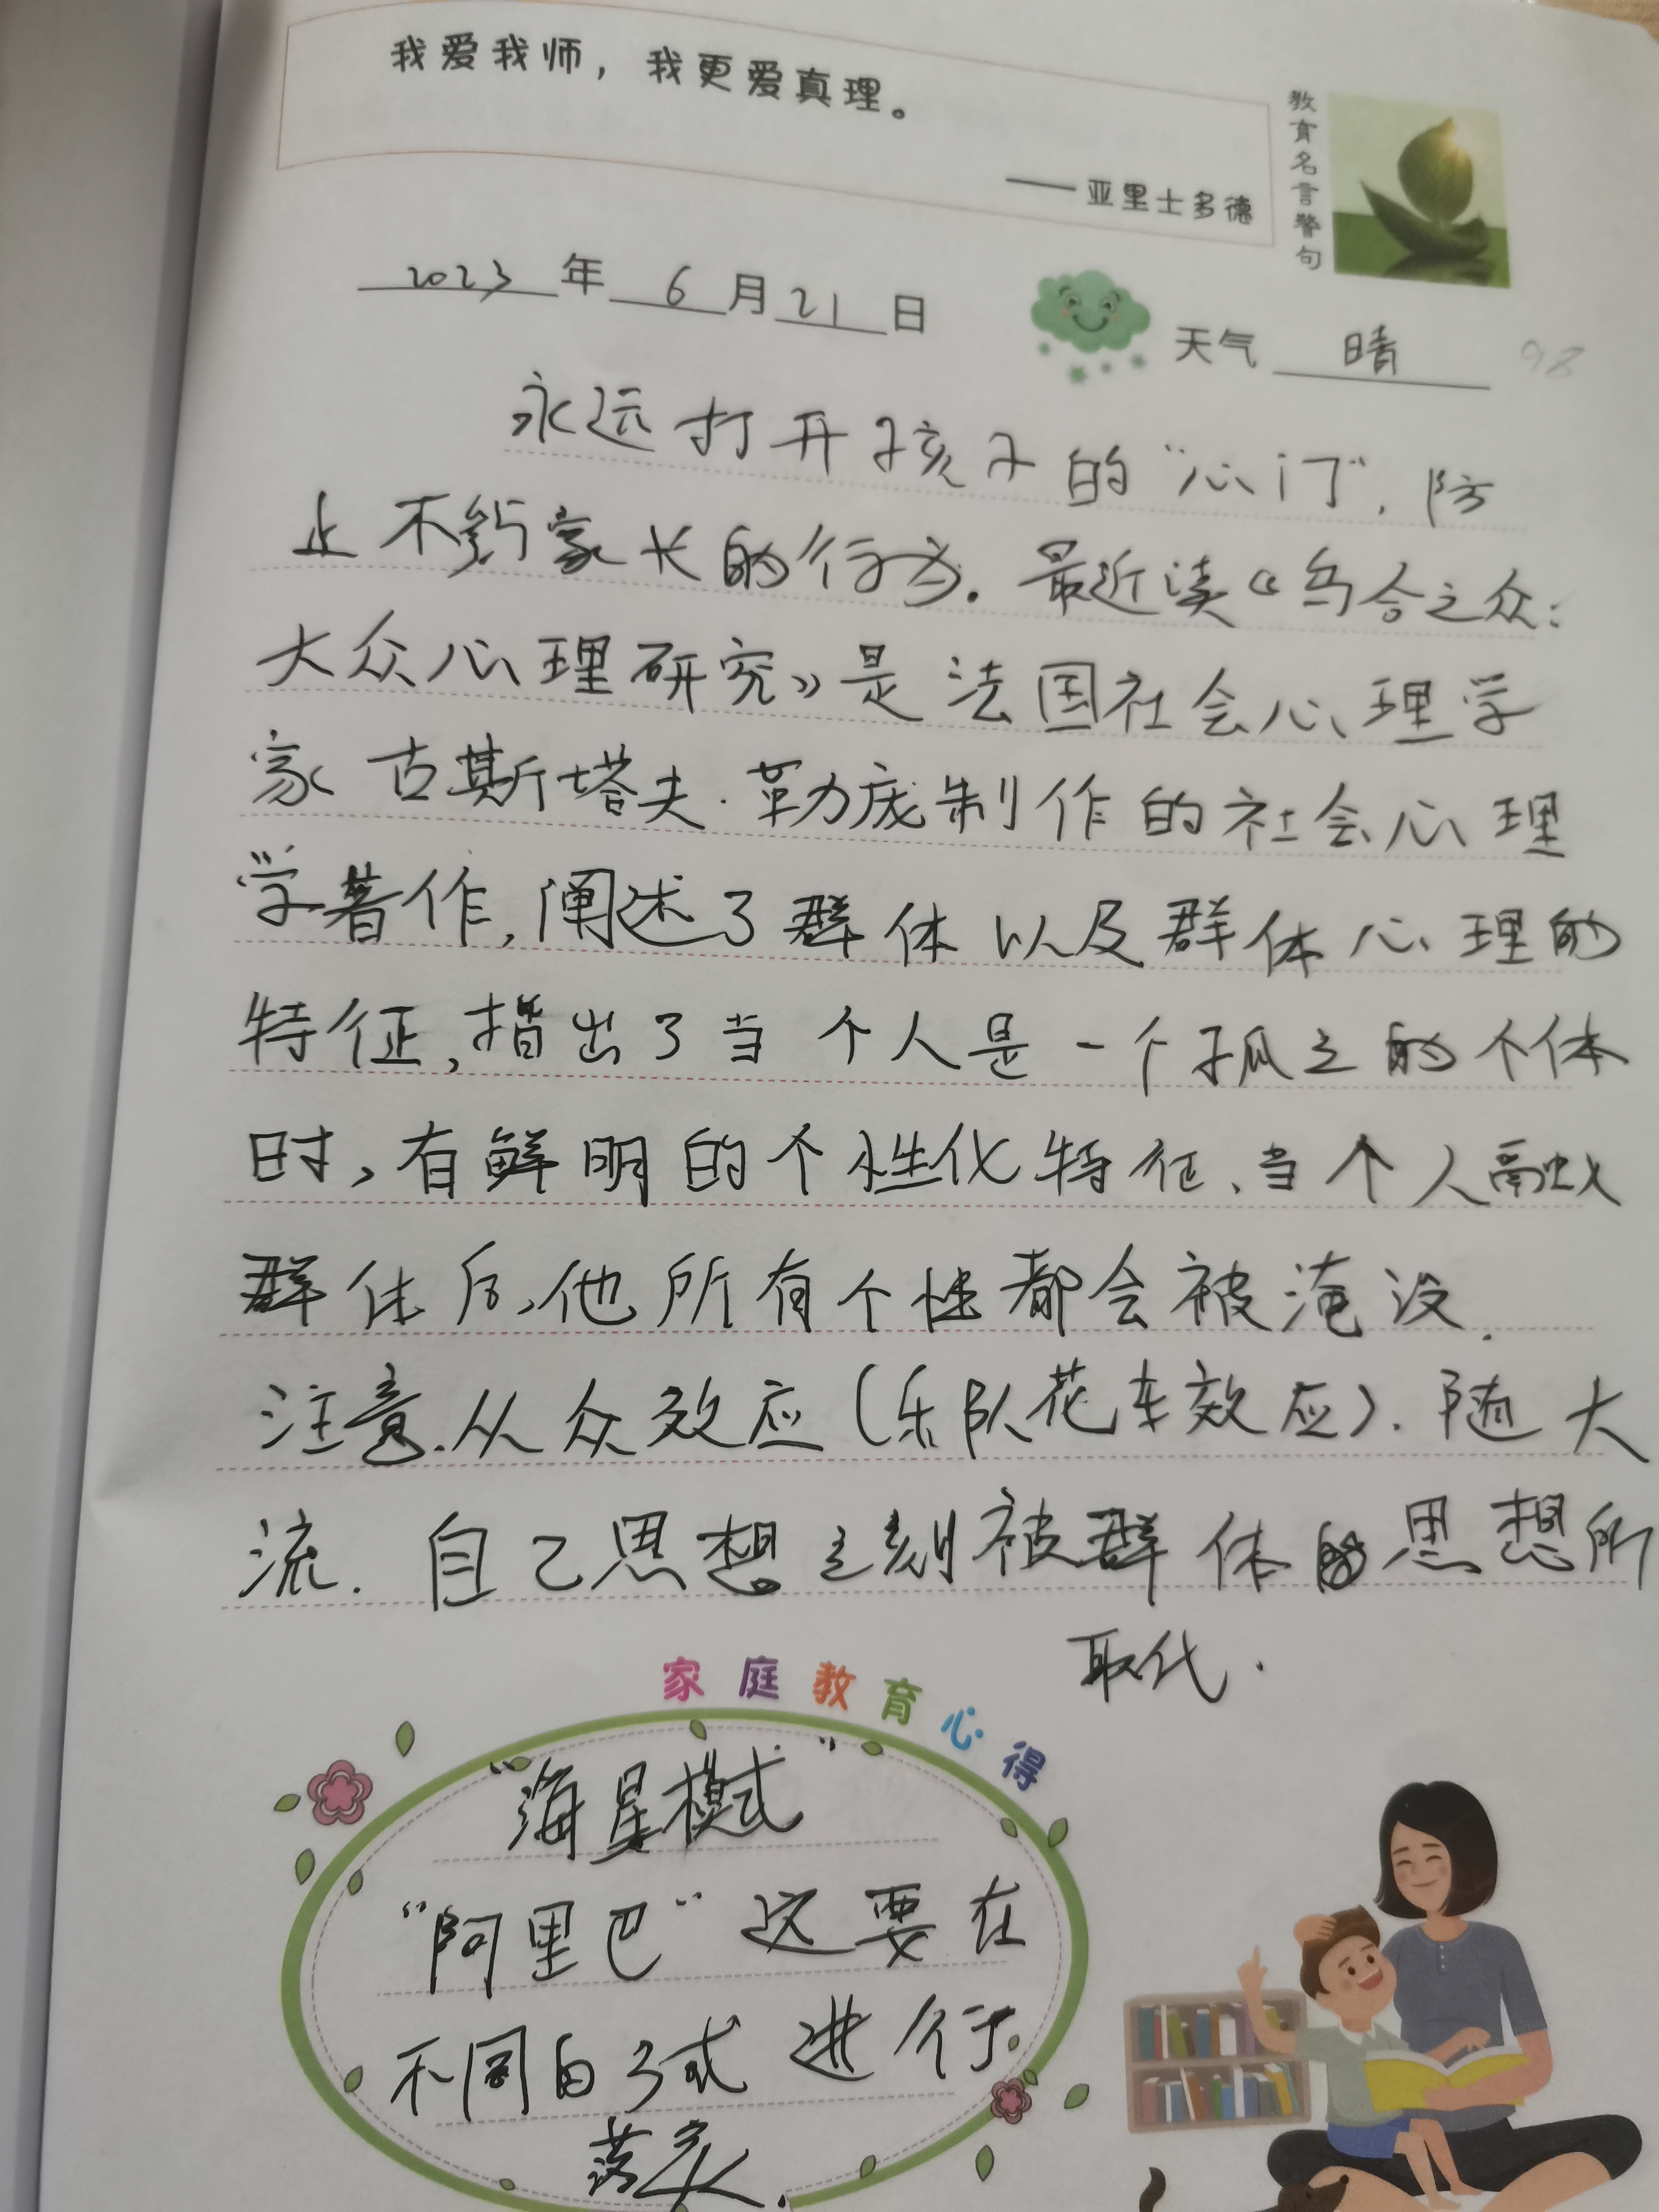 我爱我师，我更爱真理。
——亚里士多德
教育名言警句
2023年6月21日
天气 晴
98
永远打开孩子的“心门”，防
止不够家长的行为。最近读《乌合之众：
大众心理研究》是法国社会心理学
家古斯塔夫·勒庞制作的社会心理
学著作，阐述了群体以及群体心理的
特征，指出了当个人是一个孤立的个体
时，有鲜明的个性化特征、当个人融入
群体后，他所有个性都会被淹没．
注意．从众效应（乐队花车效应）．随大
流．自己思想立刻被群体的思想所
取代．
家庭教育心得
“海星模式”
“阿里巴”这要在
不同的方式进行
落实．